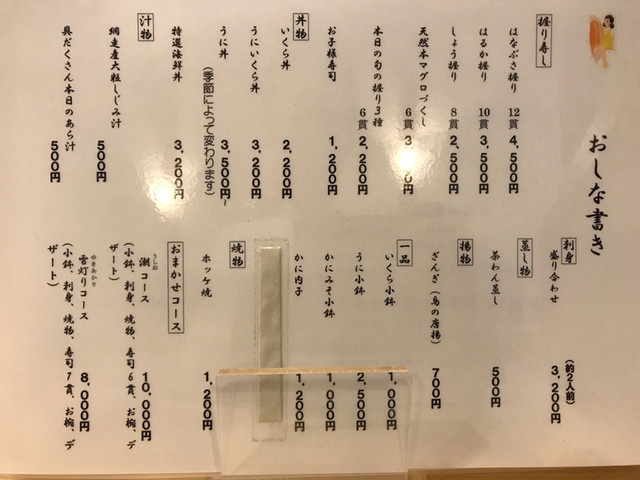 おしな書き
握り寿し
はなぶさ握り 12貫 4,500円
はるか握り 10貫 3,500円
しょう握り 8貫 2,500円
天然本マグロづくし 6貫
本日の旬の握り3種 6貫 2,200円
お子様寿司 1,200円
丼物
いくら丼 2,200円
うにいくら丼 3,200円
うに丼 3,500円~
(季節によって変わります)
特選海鮮丼 3,200円
汁物
網走産大粒しじみ汁 500円
具だくさん本日のあら汁 500円
刺身
盛り合わせ (約2人前) 3,200円
蒸し物
茶わん蒸し 500円
揚物
ざんぎ(鳥の唐揚) 700円
一品
いくら小鉢 1,000円
うに小鉢 2,500円
かにみそ小鉢 1,000円
かに内子 1,200円
焼物
ホッケ焼 1,200円
おまかせコース
潮コース 10,000円
うしお
(小鉢、刺身、焼物、寿司6貫、お椀、デ
ザート)
雪灯りコース 8,000円
ゆきあかり
(小鉢、刺身、焼物、寿司7貫、お椀、デ
ザート)